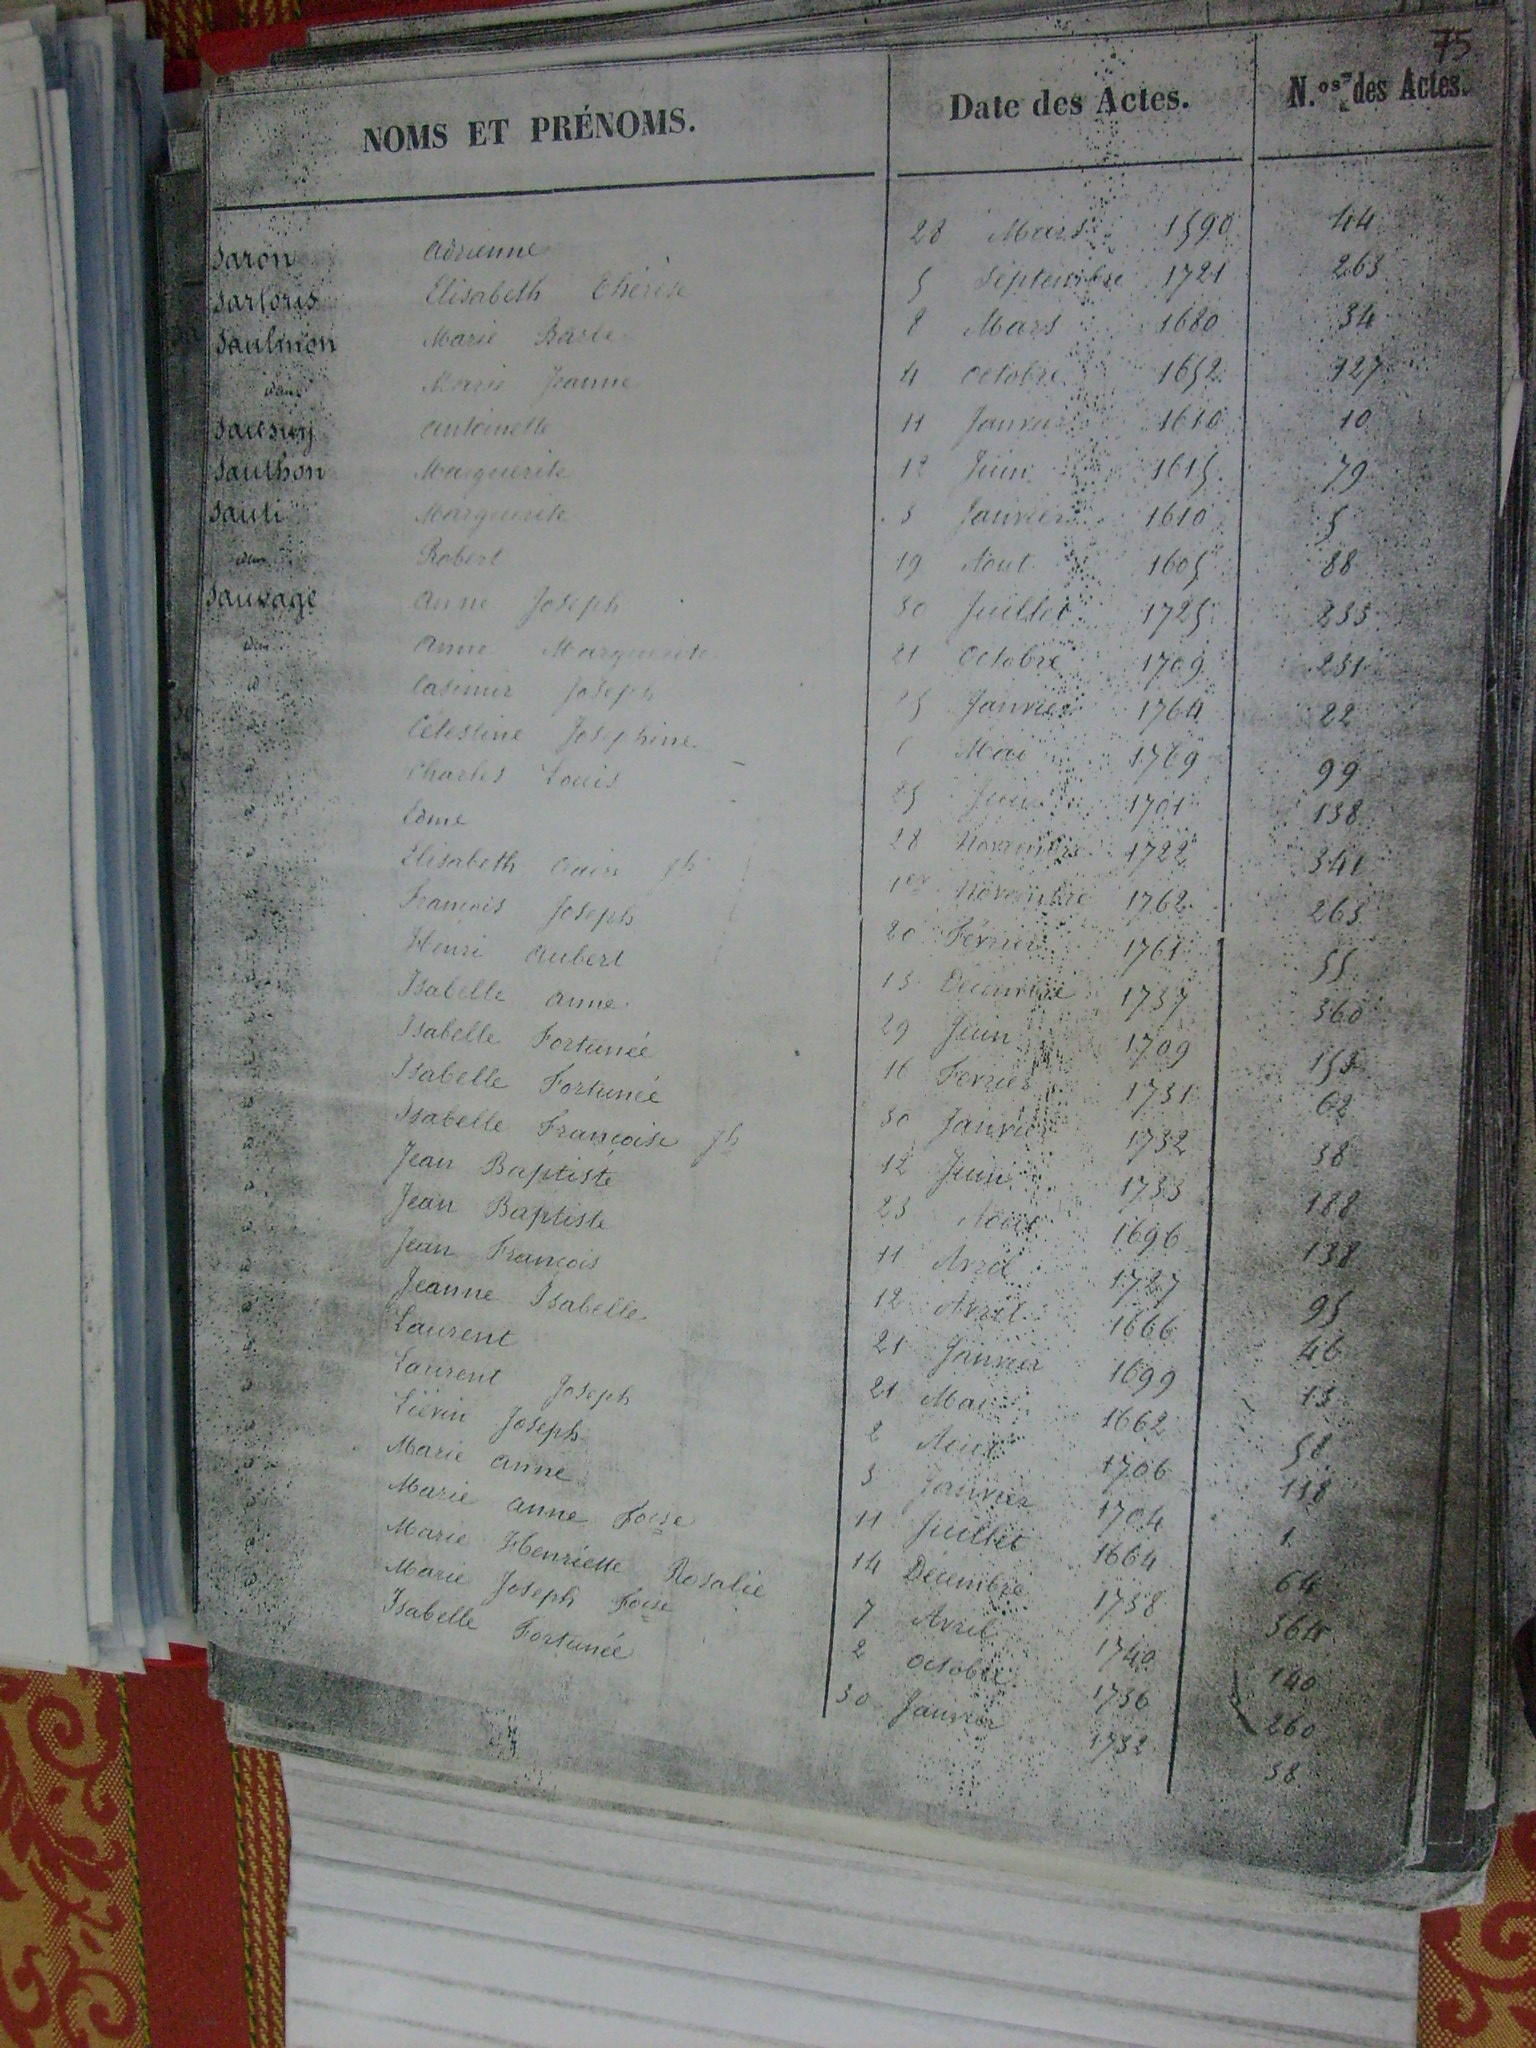 75
NOMS ET PRÉNOMS. Date des Actes. N.os des Actes.
Saron Adrienne 28 Mars 1590 44
Sartoris Elisabeth Thérèse 5 Septembre 1721 263
Saulmon Marie Barbe 8 Mars 1680 34
idem Marie Jeanne 4 Octobre 1652 127
Antoinette 11 Janvier 1610 10
Sauthon Marguerite 12 Juin 1615 79
Sauti Marguerite 3 Janvier 1610 5
idem Robert 19 Aout 1605 88
Sauvage Anne Joseph 30 Juillet 1725 233
idem Anne Marguerite 21 Octobre 1709 231
id Casimir Joseph 25 Janvier 1764 22
id Célestine Joséphine Mai 1769 99
id Charles Louis 25 Juin 1701 138
id Edme 28 Novembre 1722 341
id Elisabeth Jh 1er Novembre 1762 263
id François Joseph 20 Février 1761 55
id Henri Aubert 13 Décembre 1737 360
id Isabelle Anne 29 Juin 1709 153
id Isabelle Fortunée 16 Février 1731 62
id Isabelle Fortunée 30 Janvier 1732 38
id Isabelle Françoise Jh 12 Juin 1733 188
id Jean Baptiste 23 Aout 1696 138
id Jean Baptiste 11 Avril 1727 95
id Jean François 12 Avril 1666 46
id Jeanne Isabelle 21 Janvier 1699 13
id Laurent 21 Mai 1662 58
id Laurent Joseph 2 Aout 1706 118
id Liévin Joseph 3 Janvier 1704 1
id Marie Anne 11 Juillet 1664 64
id Marie Anne Foise 14 Décembre 1738 364
id Marie Henriette Rosalie 7 Avril 1740 140
id Marie Joseph Foise 2 Octobre 1736 260
id Isabelle Fortunée 30 Janvier 1732 38